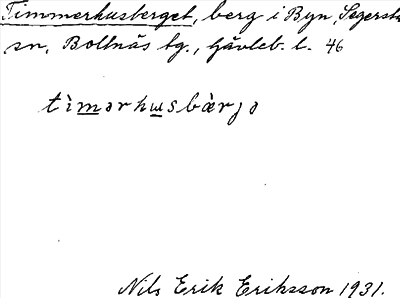 Timmerhusberget, berg i Byn, Segersta
sn, Bollnäs tg., Gävleb. l. 46
tìmərhusbàrjə
Nils Erik Eriksson 1931.